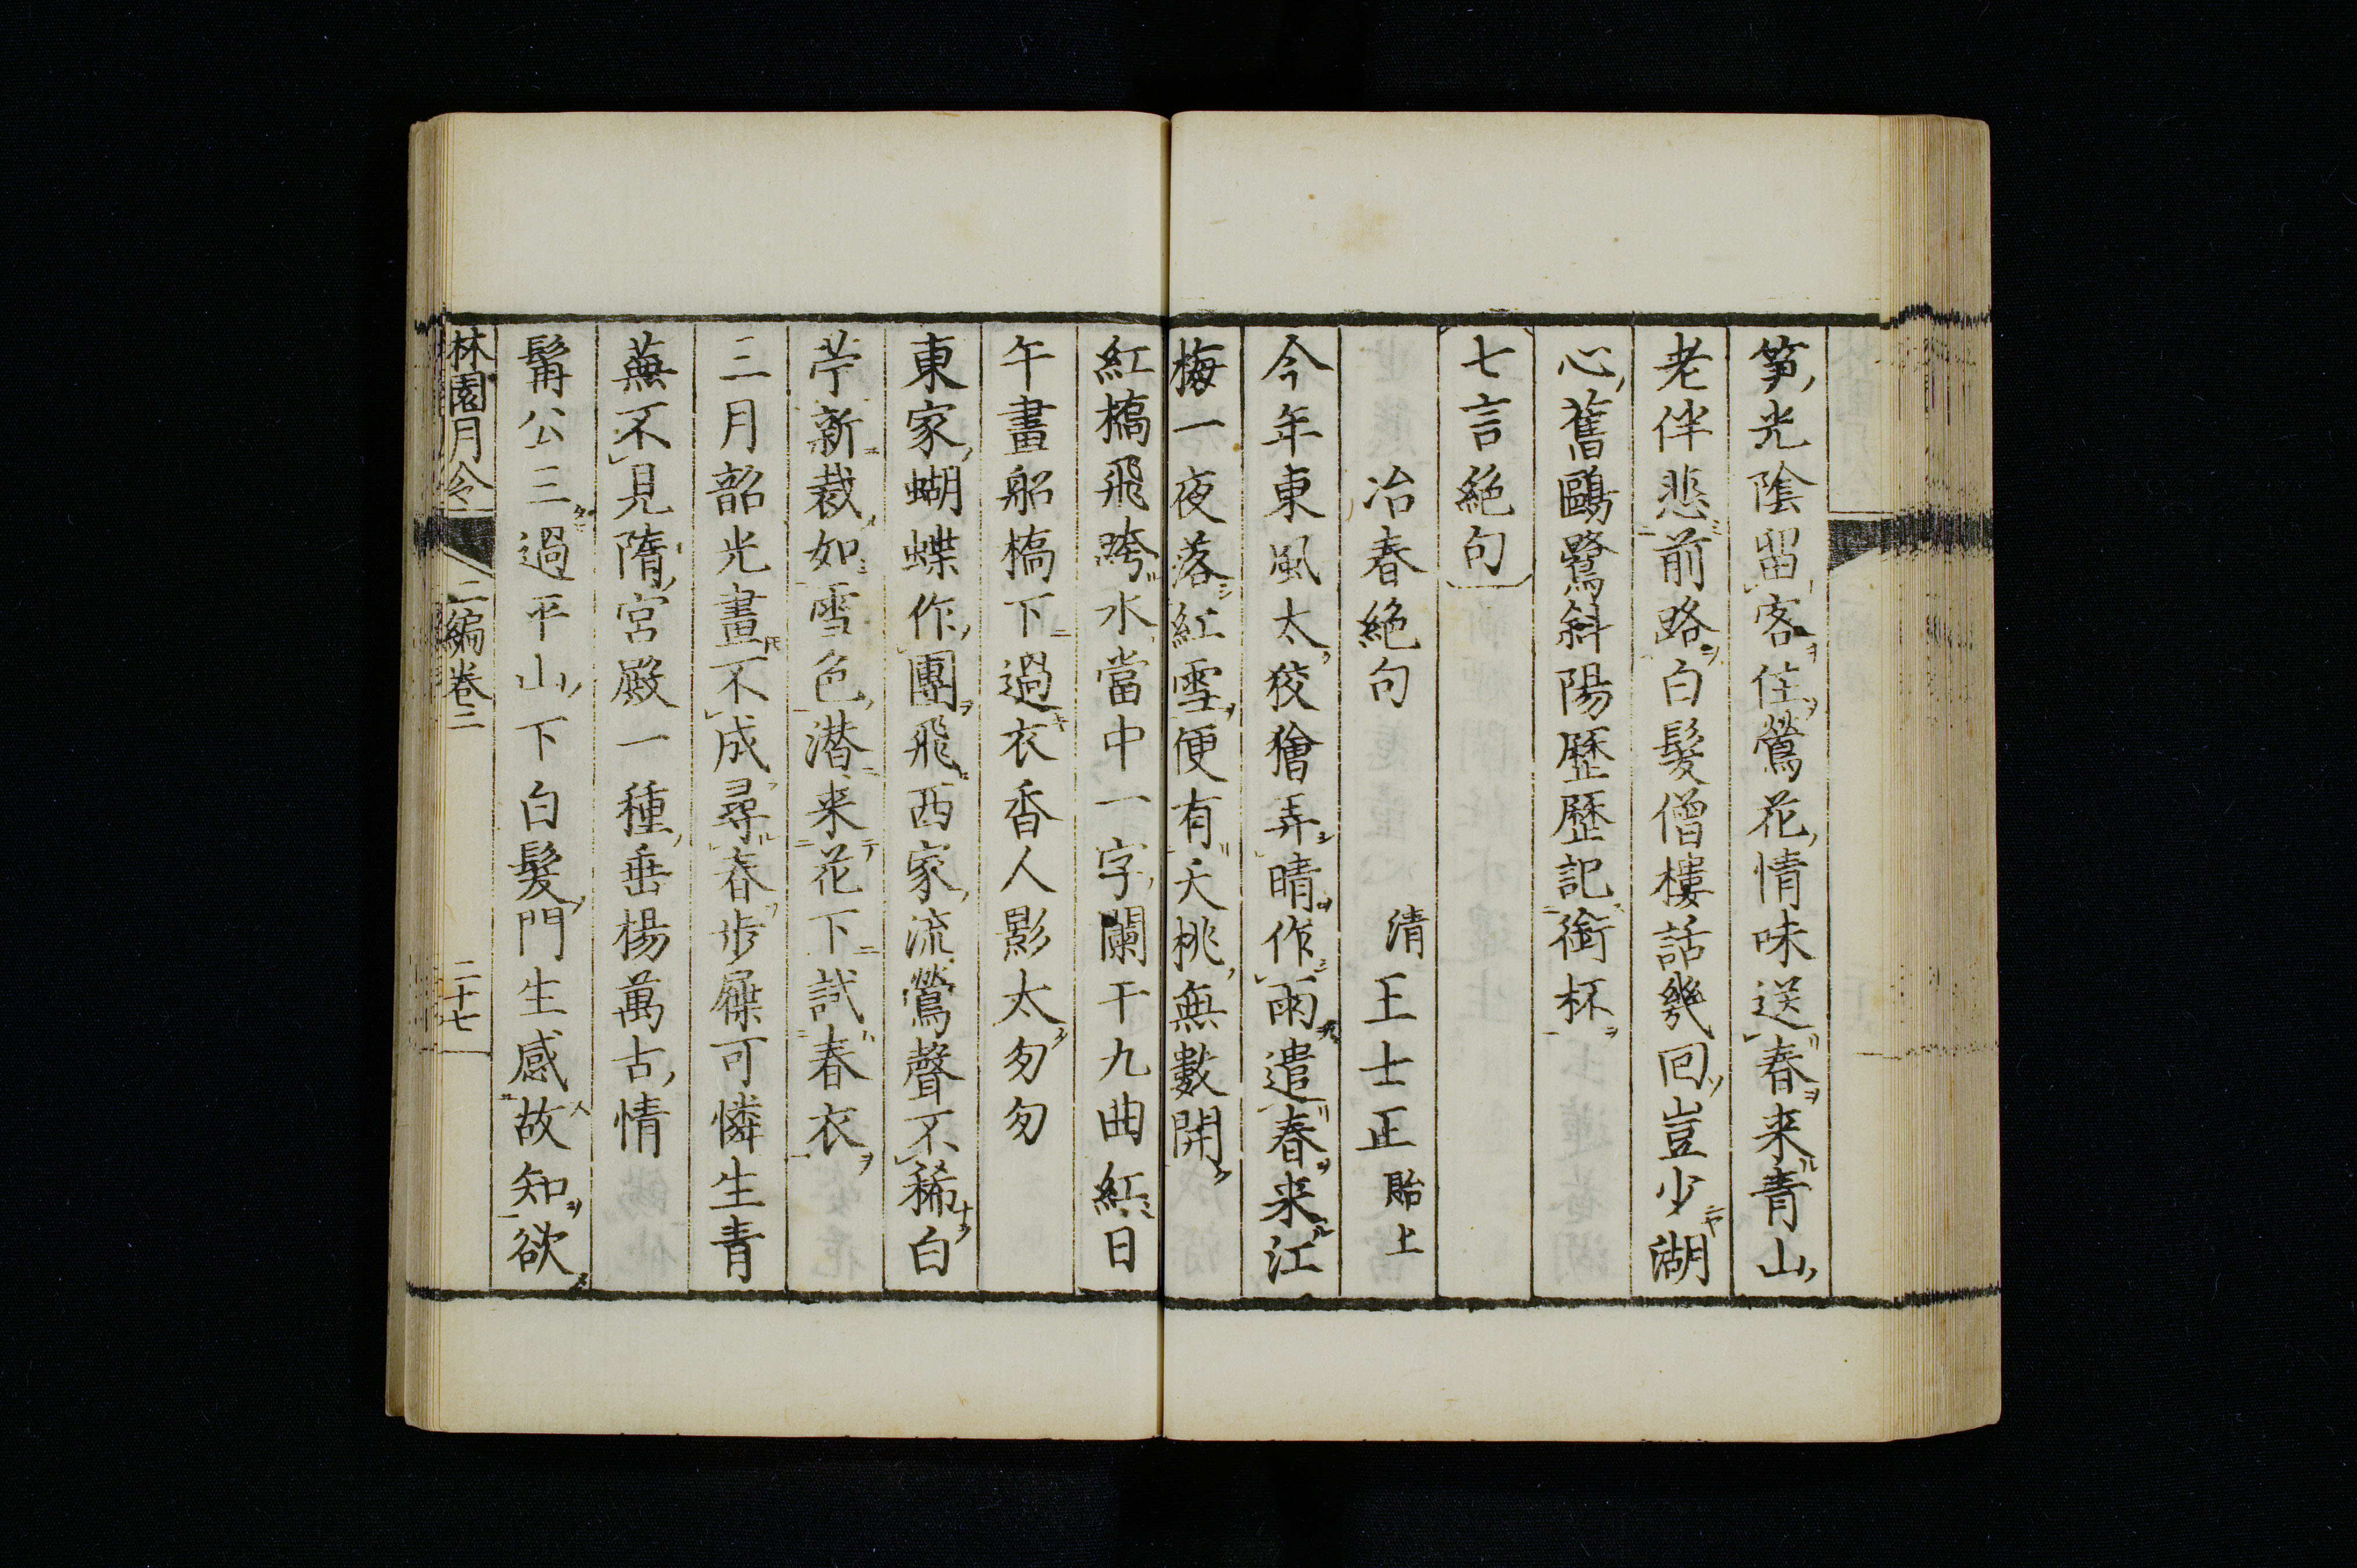 笋光陰留客住鶯花情味送春来青山
老伴悲前路白髮僧樓話幾回豈少湖
心舊鷗鷺斜陽歷歷記銜杯
七言絶句
冶春絶句 清 王士正 貽上
今年東風太狡獪弄晴作雨遣春来江
梅一夜落紅雪便有夭桃無數開
紅橋飛跨水當中一字闌干九曲紅日
午畫船橋下過衣香人影太匆匆
東家蝴蝶作團飛西家流鶯聲不稀白
苧新裁如雪色潜来花下試春衣
三月韶光畫不成尋春步屧可憐生青
蕪不見隋宮殿一種垂楊萬古情
髯公三過平山下白髮門生感故知欲
林園月令 二編卷三 二十七